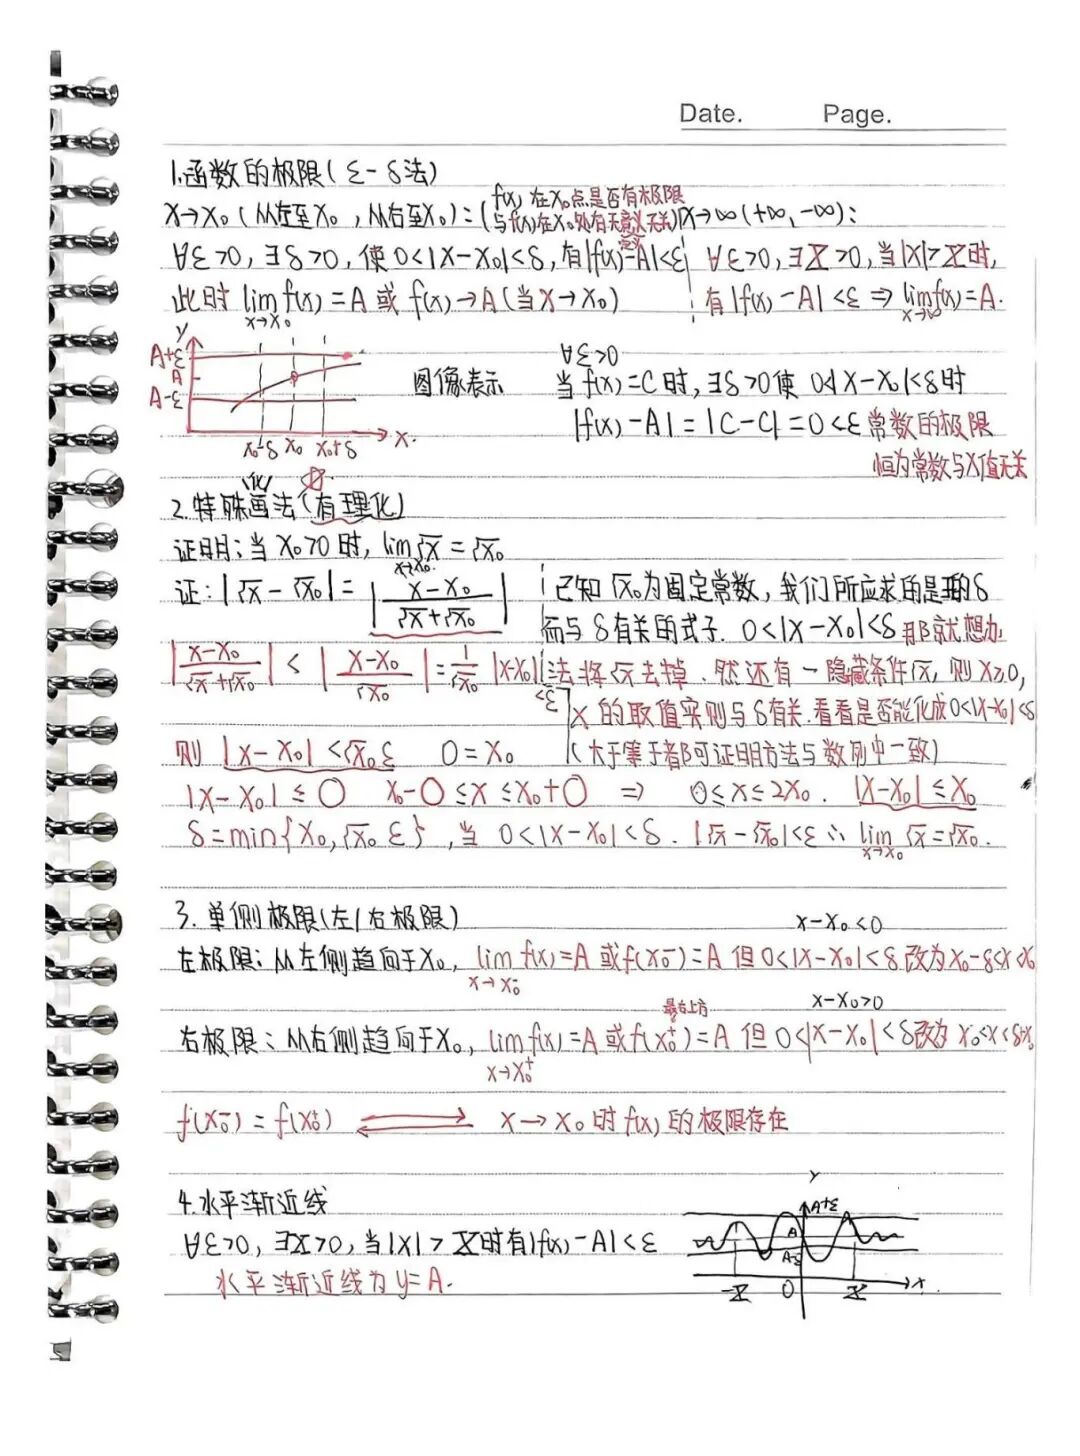 Date. Page.
1.函数的极限(ε-δ法)
x→x₀(从左至x₀,从右至x₀):(f(x)在x₀点是否有极限与f(x)在x₀处有无意义无关) x→∞(+∞,-∞):
定义
∀ε>0,∃δ>0,使0<|x-x₀|<δ,有|f(x)-A|<ε ∀ε>0,∃X>0,当|x|>X时,
此时 lim f(x)=A或 f(x)→A(当x→x₀) 有|f(x)-A|<ε⇒lim f(x)=A.
x→x₀ x→∞
y
A+ε
A
A-ε
x₀-δ x₀ x₀+δ x.
图像表示
∀ε>0
当f(x)=C时,∃δ>0使 0<|x-x₀|<δ时
|f(x)-A|=|C-C|=0<ε 常数的极限
恒为常数与x值无关
化
2.特殊画法(有理化)
证明:当x₀>0时,lim √x=√x₀
x→x₀.
证:|√x-√x₀|=|(x-x₀)/(√x+√x₀)| 已知√x₀为固定常数,我们所应求的是δ
而与δ有关的式子.0<|x-x₀|<δ那就想办
|(x-x₀)/(√x+√x₀)|<|(x-x₀)/√x₀|=1/√x₀|x-x₀|<ε 法将√x去掉.然还有一隐藏条件√x,则x≥0,
x的取值实则与δ有关.看看是否能化成0<|x-x₀|<δ
则|x-x₀|<√x₀ε 0=x₀ (大于等于者都可证明方法与数列中一致)
|x-x₀|≤0 x₀-0≤x≤x₀+0 ⇒ 0≤x≤2x₀. |x-x₀|≤x₀
δ=min{x₀,√x₀ε},当 0<|x-x₀|<δ.|√x-√x₀|<ε∴lim √x=√x₀.
x→x₀
3.单侧极限(左/右极限) x-x₀<0
左极限:从左侧趋向于x₀,lim f(x)=A或f(x₀⁻)=A但0<|x-x₀|<δ改为x₀-δ<x<x₀
x→x₀⁻
是右上方 x-x₀>0
右极限:从右侧趋向于x₀,lim f(x)=A或f(x₀⁺)=A但 0<|x-x₀|<δ改为 x₀<x<δ+x₀
x→x₀⁺
f(x₀⁻)=f(x₀⁺) ⇌ x→x₀时f(x)的极限存在
4.水平渐近线
∀ε>0,∃X>0,当|x|>X时有|f(x)-A|<ε
水平渐近线为y=A.
y
A+ε
A
A-ε
-X 0 X x